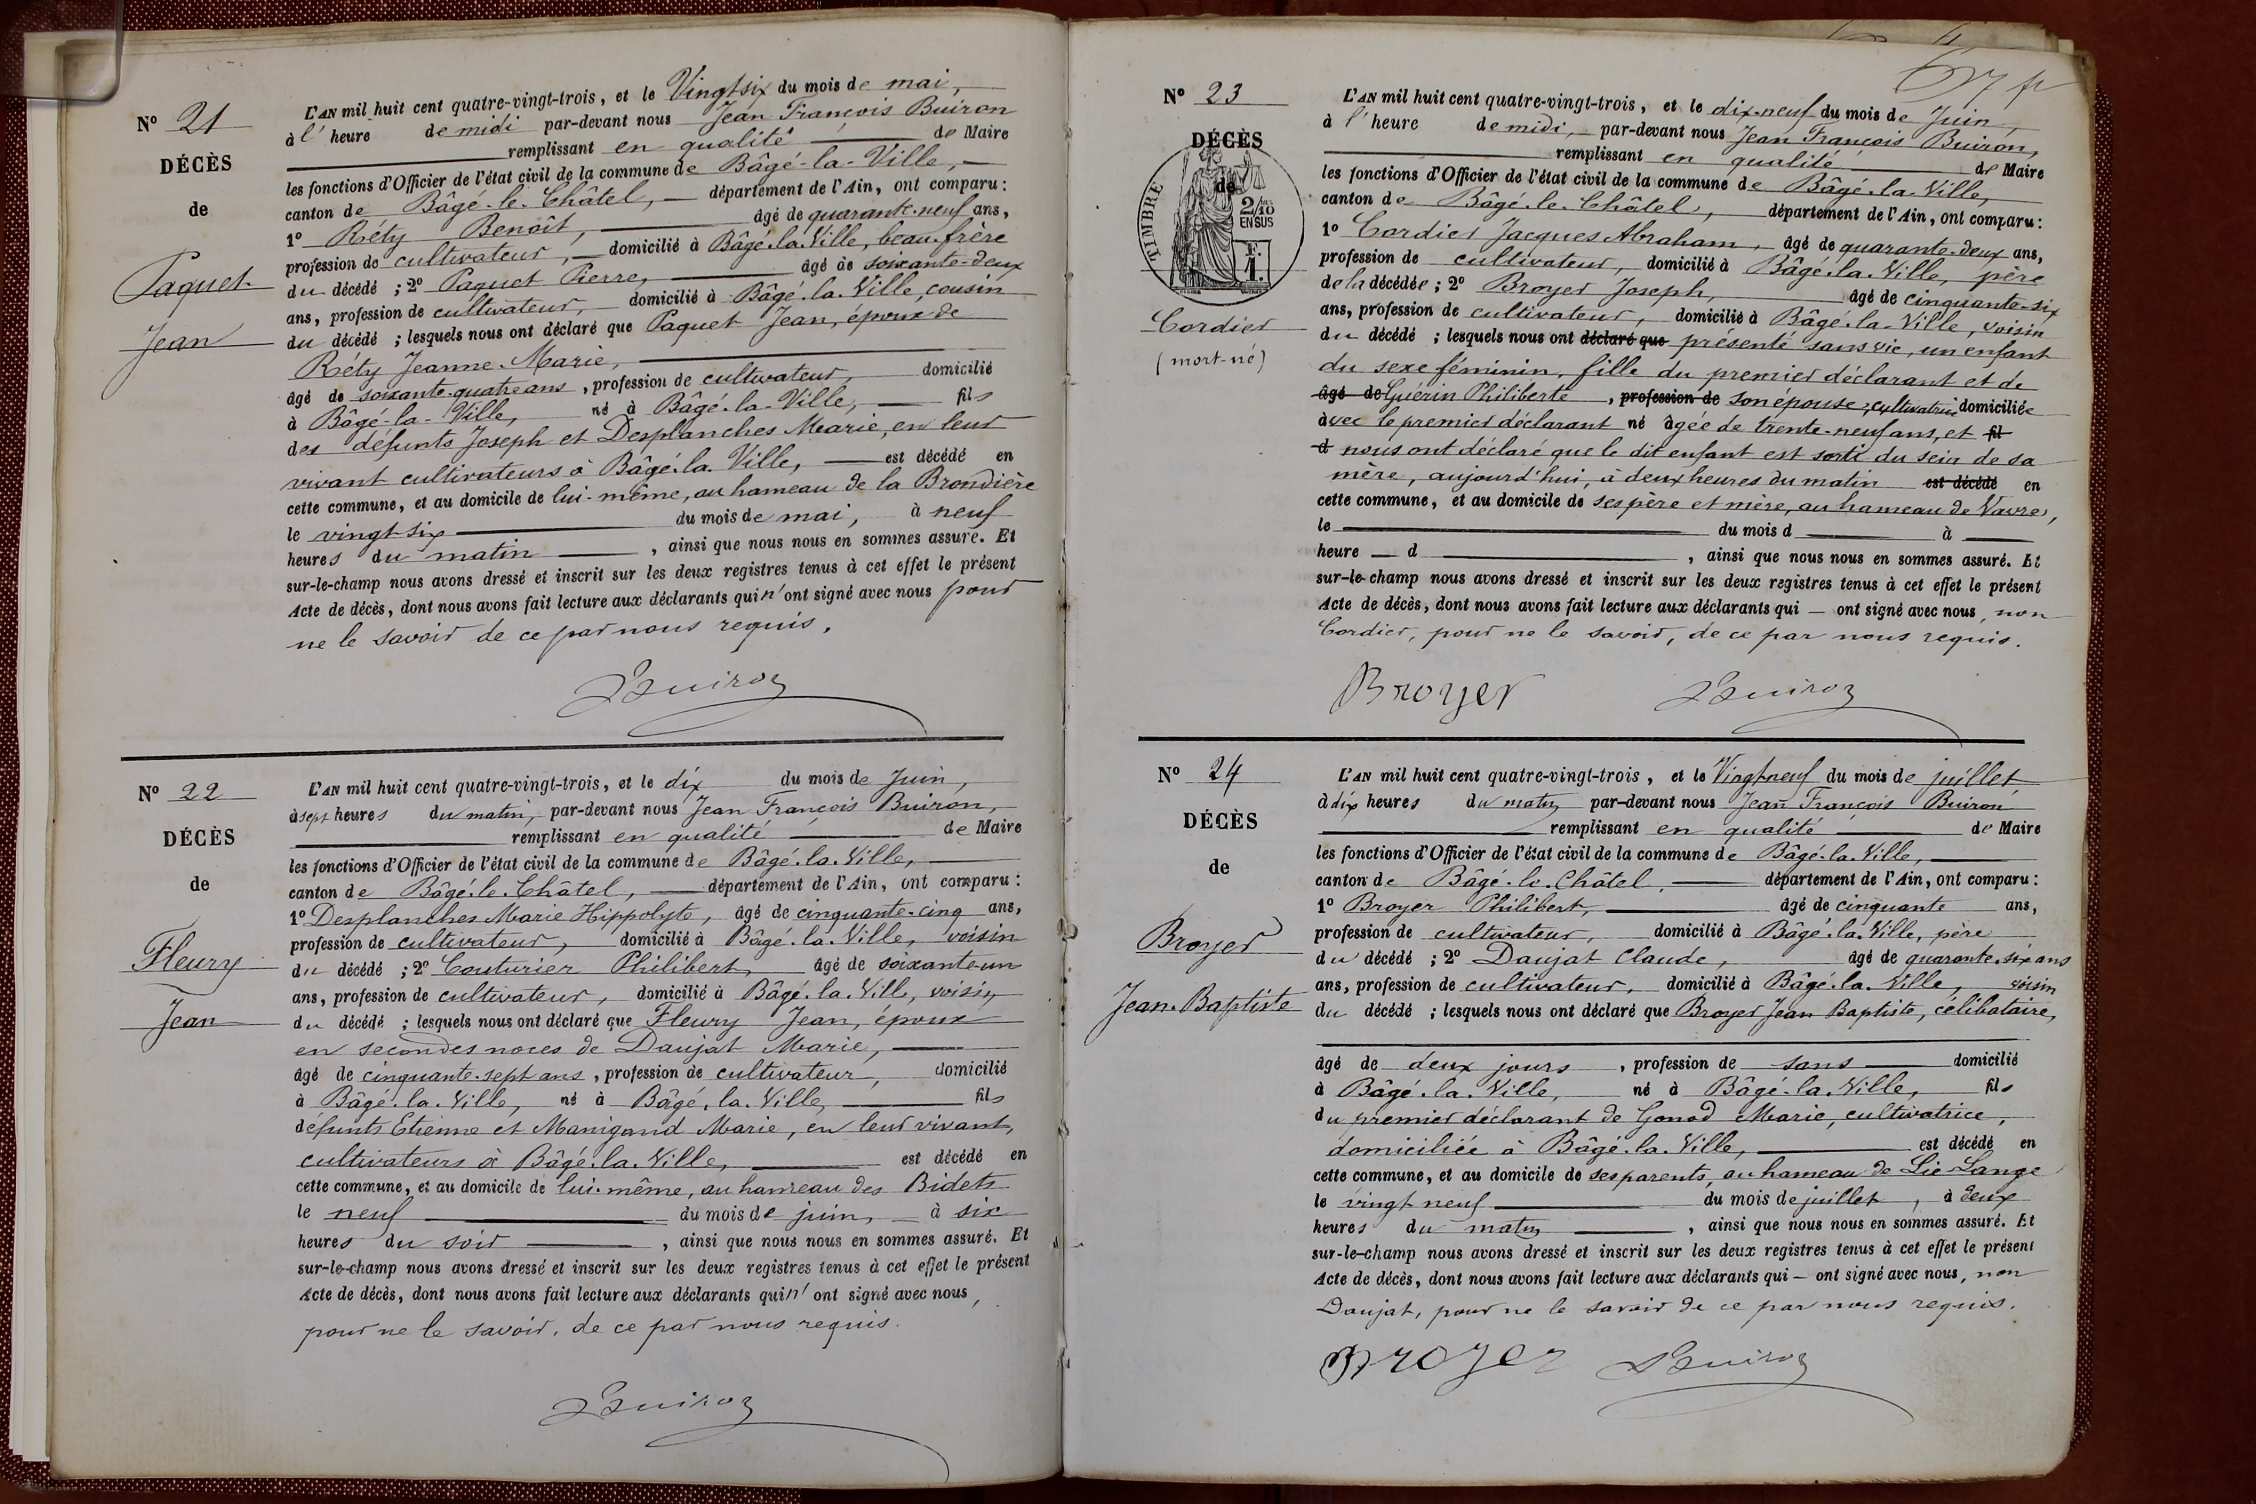 N° 21
DÉCÈS
de
Paquet
Jean
L'AN mil huit cent quatre-vingt-trois, et le Vingt-six du mois de mai,
à l'heure de midi par-devant nous Jean François Buiron
remplissant en qualité de Maire
les fonctions d'Officier de l'état civil de la commune de Bâgé-la-Ville,
canton de Bâgé-le-Châtel, département de l'Ain, ont comparu :
1° Réty Benoît, âgé de quarante-neuf ans,
profession de cultivateur, domicilié à Bâgé-la-Ville, beau-frère
du décédé ; 2° Paquet Pierre, âgé de soixante-deux
ans, profession de cultivateur, domicilié à Bâgé-la-Ville, cousin
du décédé ; lesquels nous ont déclaré que Paquet Jean, époux de
Réty Jeanne-Marie,
âgé de soixante-quatre ans, profession de cultivateur, domicilié
à Bâgé-la-Ville, né à Bâgé-la-Ville, fils
des défunts Joseph et Desplanches Marie, en leur
vivant cultivateurs à Bâgé-la-Ville, est décédé en
cette commune, et au domicile de lui-même, au hameau de la Brondière
le vingt-six du mois de mai, à neuf
heures du matin, ainsi que nous nous en sommes assuré. Et
sur-le-champ nous avons dressé et inscrit sur les deux registres tenus à cet effet le présent
Acte de décès, dont nous avons fait lecture aux déclarants qui n'ont signé avec nous pour
ne le savoir de ce par nous requis.
Buiron
N° 22
DÉCÈS
de
Fleury
Jean
L'AN mil huit cent quatre-vingt-trois, et le dix du mois de Juin,
à sept heures du matin, par-devant nous Jean François Buiron,
remplissant en qualité de Maire
les fonctions d'Officier de l'état civil de la commune de Bâgé-la-Ville,
canton de Bâgé-le-Châtel, département de l'Ain, ont comparu :
1° Desplanches Marie Hippolyte, âgé de cinquante-cinq ans,
profession de cultivateur, domicilié à Bâgé-la-Ville, voisin
du décédé ; 2° Couturier Philibert, âgé de soixante-un
ans, profession de cultivateur, domicilié à Bâgé-la-Ville, voisin
du décédé ; lesquels nous ont déclaré que Fleury Jean, époux
en secondes noces de Daujat Marie,
âgé de cinquante-sept ans, profession de cultivateur, domicilié
à Bâgé-la-Ville, né à Bâgé-la-Ville, fils
défunts Etienne et Manigand Marie, en leur vivant,
cultivateurs à Bâgé-la-Ville, est décédé en
cette commune, et au domicile de lui-même, au hameau des Bidets
le neuf du mois de juin, à six
heures du soir, ainsi que nous nous en sommes assuré. Et
sur-le-champ nous avons dressé et inscrit sur les deux registres tenus à cet effet le présent
Acte de décès, dont nous avons fait lecture aux déclarants qui n'ont signé avec nous,
pour ne le savoir, de ce par nous requis.
Buiron
N° 23
DÉCÈS
de
TIMBRE
2/10
EN SUS
F.
1.
Cordier
(mort-né)
L'AN mil huit cent quatre-vingt-trois, et le dix-neuf du mois de Juin,
à l'heure de midi, par-devant nous Jean François Buiron,
remplissant en qualité de Maire
les fonctions d'Officier de l'état civil de la commune de Bâgé-la-Ville,
canton de Bâgé-le-Châtel, département de l'Ain, ont comparu :
1° Cordier Jacques Abraham, âgé de quarante-deux ans,
profession de cultivateur, domicilié à Bâgé-la-Ville, père
de la décédée ; 2° Broyer Joseph, âgé de cinquante-six
ans, profession de cultivateur, domicilié à Bâgé-la-Ville, voisin
du décédé ; lesquels nous ont déclaré que présenté sans vie, un enfant
du sexe féminin, fille du premier déclarant et de
âgé de Guérin Philiberte, profession de son épouse, cultivatrice domiciliée
avec le premier déclarant né âgée de trente-neuf ans, et fil
d nous ont déclaré que le dit enfant est sorti du sein de sa
mère, aujourd'hui, à deux heures du matin est décédé en
cette commune, et au domicile de ses père et mère, au hameau de Vavre,
le du mois d à
heure d, ainsi que nous nous en sommes assuré. Et
sur-le-champ nous avons dressé et inscrit sur les deux registres tenus à cet effet le présent
Acte de décès, dont nous avons fait lecture aux déclarants qui ont signé avec nous, non
Cordier, pour ne le savoir, de ce par nous requis.
Broyer Buiron
N° 24
DÉCÈS
de
Broyer
Jean-Baptiste
L'AN mil huit cent quatre-vingt-trois, et le Vingt-neuf du mois de juillet
à dix heures du matin par-devant nous Jean François Buiron
remplissant en qualité de Maire
les fonctions d'Officier de l'état civil de la commune de Bâgé-la-Ville,
canton de Bâgé-le-Châtel, département de l'Ain, ont comparu :
1° Broyer Philibert, âgé de cinquante ans,
profession de cultivateur, domicilié à Bâgé-la-Ville, père
du décédé ; 2° Daujat Claude, âgé de quarante-six ans
ans, profession de cultivateur, domicilié à Bâgé-la-Ville, voisin
du décédé ; lesquels nous ont déclaré que Broyer Jean Baptiste, célibataire,
âgé de deux jours, profession de sans domicilié
à Bâgé-la-Ville, né à Bâgé-la-Ville, fils
du premier déclarant de Gonod Marie, cultivatrice,
domiciliée à Bâgé-la-Ville, est décédé en
cette commune, et au domicile de ses parents, au hameau de Lie-Lange
le vingt neuf du mois de juillet, à deux
heures du matin, ainsi que nous nous en sommes assuré. Et
sur-le-champ nous avons dressé et inscrit sur les deux registres tenus à cet effet le présent
Acte de décès, dont nous avons fait lecture aux déclarants qui ont signé avec nous, non
Daujat, pour ne le savoir de ce par nous requis.
Broyer Buiron